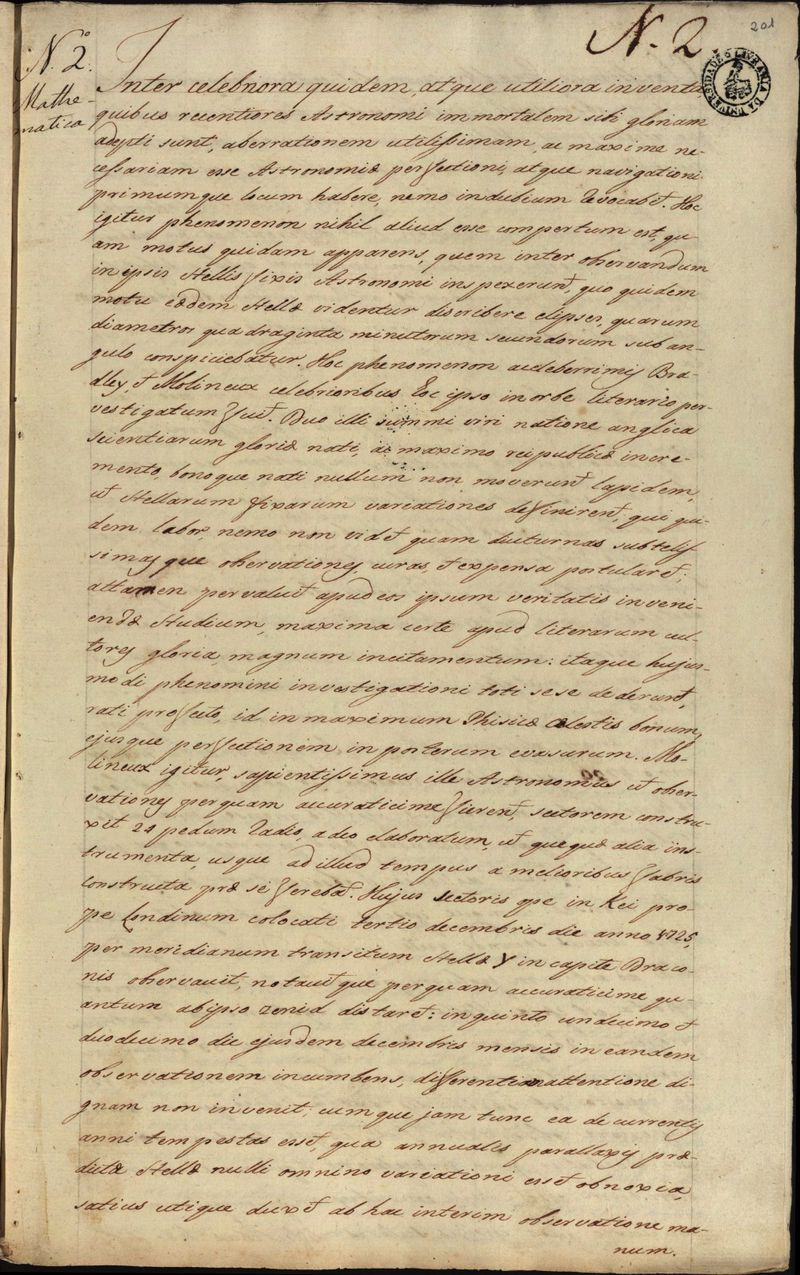 N. 2
201
N.º 2.
Mathe-
matica
UNIVERSIDADE LIVRARIA DA
Inter celebriora quidem, atque utiliora inventa
quibus recentiores Astronomi immortalem sibi gloriam
adepti sunt, aberrationem utilissimam, ac maxime ne-
cessariam esse Astronomiæ perfectioni, atque navigationi
primumque locum habere, nemo in dubium revocabit. Hoc
igitur phenomenon nihil aliud esse compertum est, qu-
am motus quidam apparens, quem inter observandum
in ipsis Stellis fixis Astronomi inspexerunt, quo quidem
motu eædem Stellæ videntur discribere elipses, quarum
diametros quadraginta minutorum secundorum sub an-
gulo conspiciebatur. Hoc phenomenon a celeberrimis Bra-
dley, et Molineux celebrioribus hoc ipso in orbe literario per-
vestigatum fuit. Duo illi summi viri natione anglica
scientiarum gloriæ nati, ac maximo reipublicæ incre-
mento, bonoque nati nullum non moverunt lapidem,
ut Stellarum fixarum variationes definirent, qui qui-
dem labor, nemo non videt quam diuturnas subtelis-
simasque observationes curas, et expensa postularet;
attamen pervaluit apud eos ipsum veritatis inveni-
endæ Studium, maxima certe apud literarum cul-
tores gloria, magnum incitamentum: itaque hujus-
modi phenomini investigationi toti sese dederunt,
rati profecto, id in maximum Phisicæ Celestis bonum,
ejusque perfectionem in posterum evasurum. Mo-
lineux igitur, sapientissimus ille Astronomus ut obser-
vationes perquam accuraticime fierent, sectorem constru-
xit 24 pedum radio, adeo elaboratum, ut quequæ alia ins-
trumenta, usque ad illud tempus a melioribus fabris
constructa præ se ferebat. Hujus sectoris ope in Kei pro-
pe Londinum colocati tertio decembris die anno 1725,
per meridianum transitum Stellæ γ in capite Draco-
nis observavit, notavitque perquam accuraticime qu-
antum ab ipso zenid distaret: in quinto undecimo et
duodecimo die ejusdem decembris mensis in eandem
observationem incumbens, differentiam attentione di-
gnam non invenit; cumque jam tunc ea decurrentis
anni tempestas esset, qua annualis parallaxis præ-
dictæ Stellæ nulli omnino variationi esset obnoxia,
satius utique duxit ab hac interim observatione ma-
num.